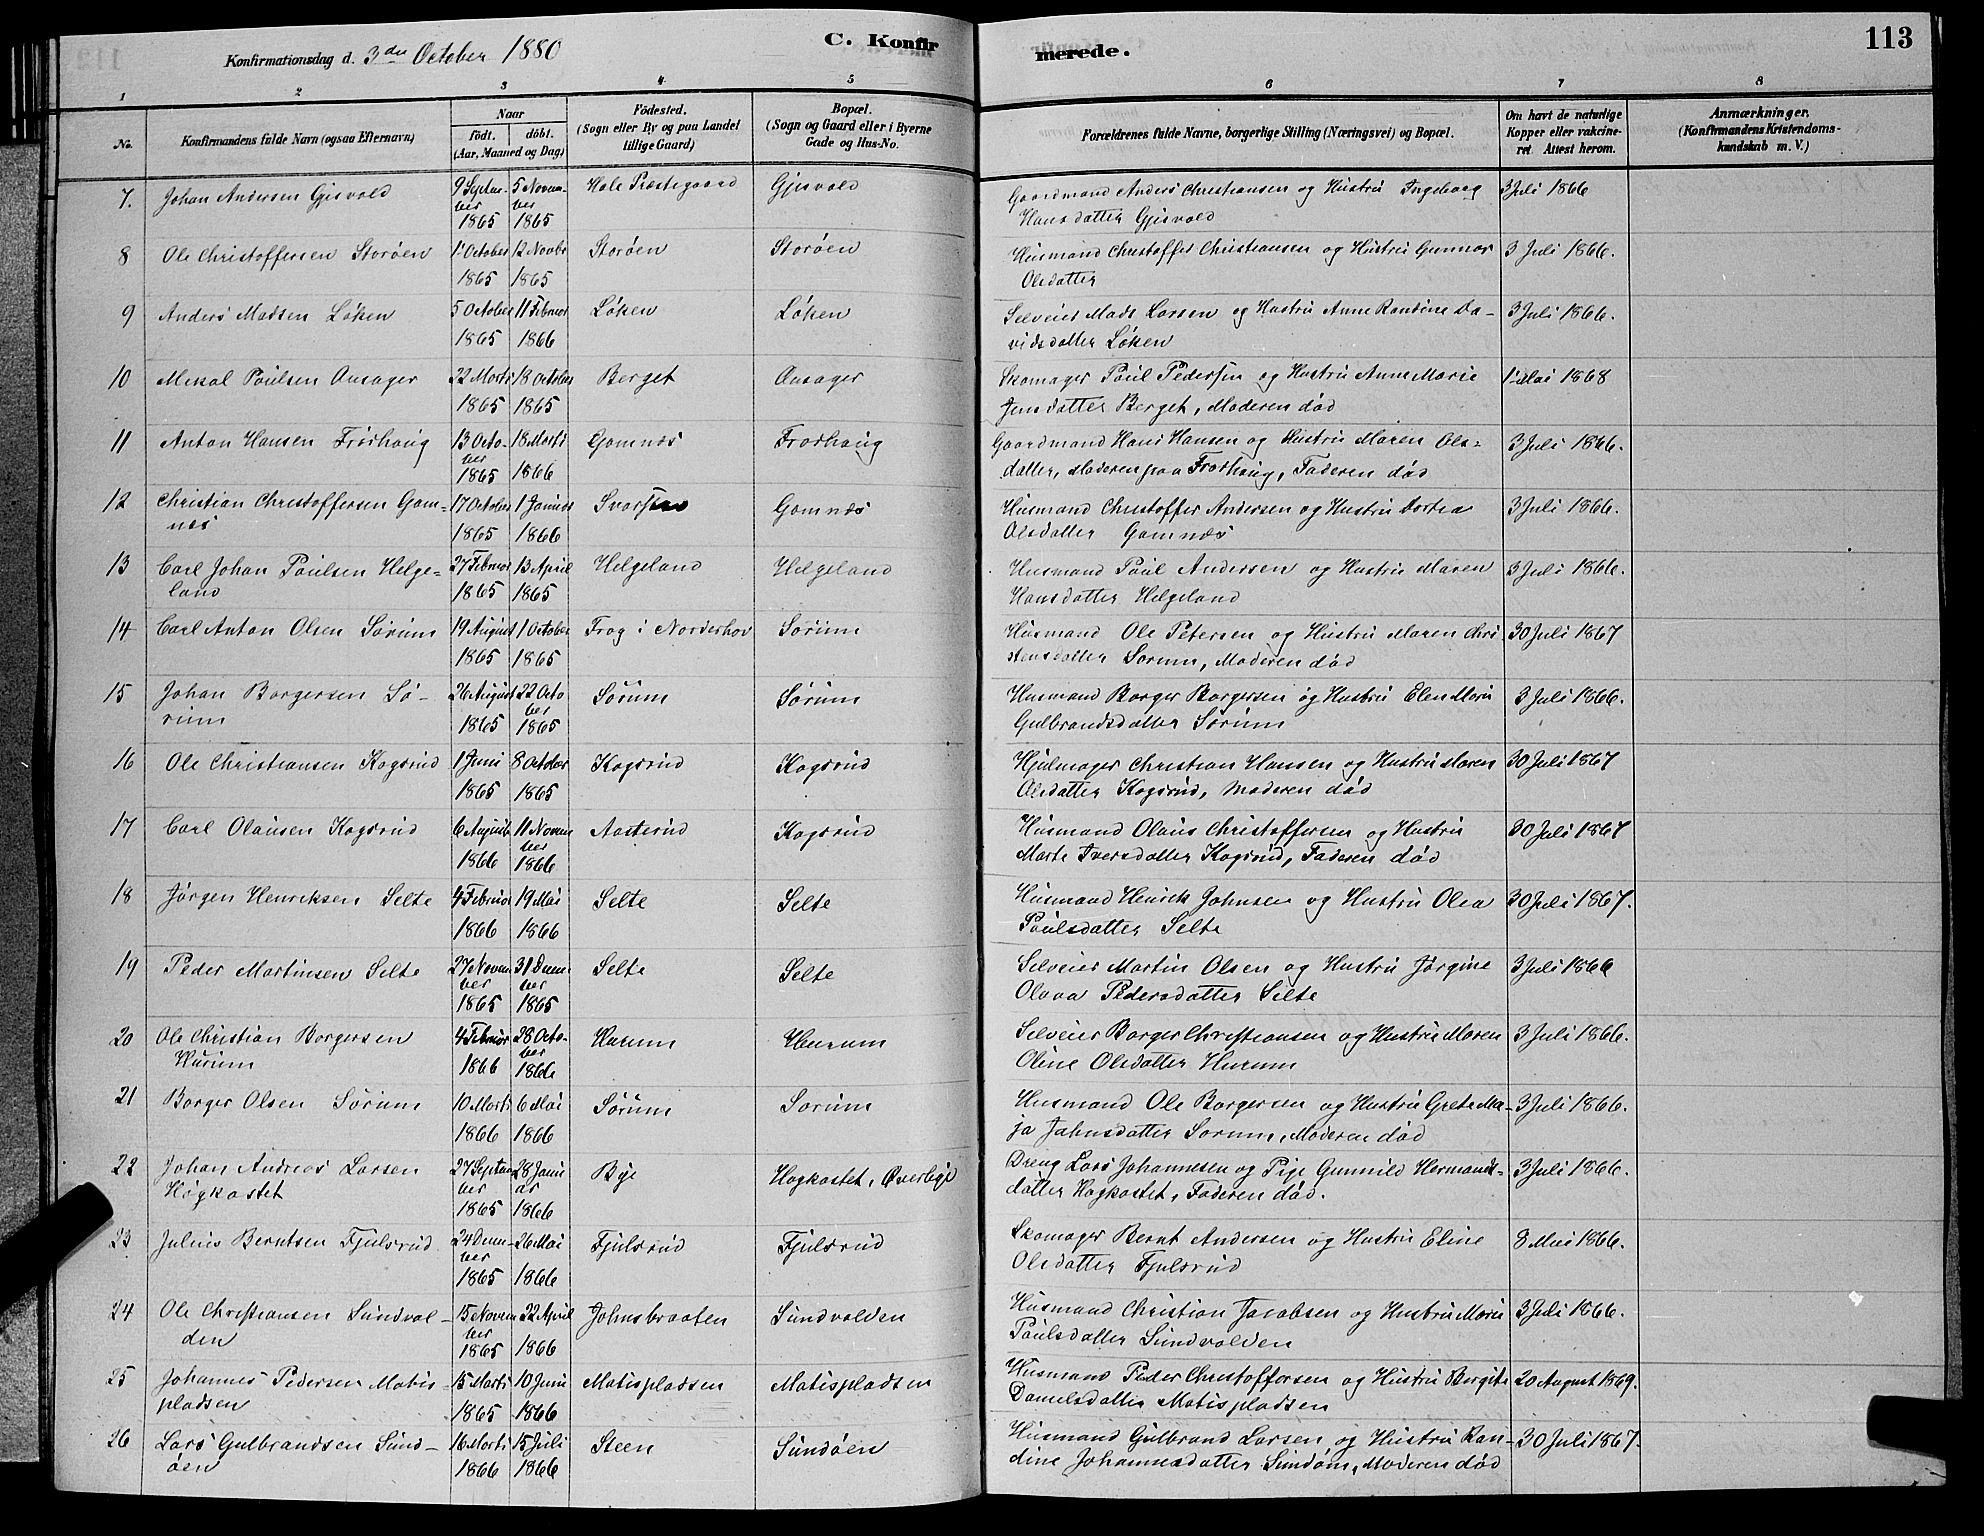 Konfirmationsdag d. 3die October 1880
C. Konfirmerede.
113
1 2 3 4 5 6 7 8
No.
Konfirmandens fulde Navn (ogsaa Efternavn)
Naar
födt. döbt.
(Aar, Maaned og Dag)
Födested.
(Sogn eller By og paa Landet
tillige Gaard)
Bopæl.
(Sogn og Gaard eller i Byerne
Gade og Hus-No.
Forældrenes fulde Navne, borgerlige Stilling (Næringsvei) og Bopæl.
Om havt de naturlige
Kopper eller vakcine-
ret. Attest herom.
Anmærkninger.
(Konfirmandens Kristendoms-
kundskab m. V.)
7. Johan Andersen Gjesvold 9 September 1865 5 November 1865 Hole Præstegaard Gjesvold Gaardmand Anders Christiansen og Hustru Ingeborg 3 Juli 1866
Hansdatter Gjesvold
8 Ole Christoffersen Storøen 1 October 1865 12 Novbr 1865 Storøen Storøen Husmand Christoffer Christiansen og Hustru Gunnor 3 Juli 1866.
Olsdatter
9 Anders Madsen Løken 5 October 1865 11 Februar 1866 Løken Løken Selveier Mads Larsen og Hustru Anne Randine Da- 3 Juli 1866.
vidsdatter Løken
10 Mikal Paulsen Onsager 22 Marts 1865 18 October 1865 Berget Onsager Skomager Paul Pedersen og Hustru Anne Marie 1 Mai 1868
Jensdatter Berget, Moderen død
11 Anton Hansen Frøshaug 13 October 1865 18 Marts 1866 Gomnæs Frøshaug Gaardmand Hans Hansen og Hustru Maren Ols- 3 Juli 1866.
datter, Moderen paa Frøshaug, Faderen død
12 Christian Christoffersen Gom-
næs 17 October 1865 1 Januar 1866 Gomnæs Husmand Christoffer Andersen og Hustru Dortea 3 Juli 1866.
Olsdatter Gomnæs
13 Carl Johan Paulsen Helge-
land 27 Februar 1865 13 April 1865 Helgeland Helgeland Husmand Paul Andersen og Hustru Maren 3 Juli 1866.
Hansdatter Helgeland
14 Carl Anton Olsen Sørum 19 August 1865 1 October 1865 Frog i Norderhov Sørum Husmand Ole Petersen og Hustru Maren Chri- 30 Juli 1867
stensdatter Sørum, Moderen død
15 Johan Borgersen Sø-
rum 26 August 1865 22 October 1865 Sørum Sørum Husmand Borger Borgersen og Hustru Elen Marie 3 Juli 1866.
Gulbrandsdatter Sørum
16 Ole Christiansen Kogsrud 1 Juni 1865 8 October 1865 Kogsrud Kogsrud Hjulmager Christian Hansen og Hustru Maren 30 Juli 1867
Olsdatter Kogsrud, Moderen død
17 Carl Olausen Kogsrud 6 August 1866 11 November 1866 Aasterud Kogsrud Husmand Olaus Christoffersen og Hustru 30 Juli 1867
Marte Iversdatter Kogsrud, Faderen død
18 Jørgen Henriksen Selte 4 Februar 1866 19 Mai 1866 Selte Selte Husmand Henrik Johnsen og Hustru Olea 30 Juli 1867.
Paulsdatter Selte
19 Peder Martinsen Selte 27 November 1865 31 December 1865 Selte Selte Selveier Martin Olsen og Hustru Jørgine 3 Juli 1866
Olava Pedersdatter Selte
20 Ole Christian Borgersen
Hurum 4 Februar 1866 28 October 1866 Hurum Hurum Selveier Borger Christiansen og Hustru Maren 3 Juli 1866.
Oline Olsdatter Hurum
21 Borger Olsen Sørum 10 Marts 1866 6 Mai 1866 Sørum Sørum Husmand Ole Borgersen og Hustru Grete Ma- 3 Juli 1866.
ja Jahnsdatter Sørum, Moderen død
22 Johan Andreas Larsen
Høgkastet 27 September 1865 28 Januar 1866 Bye Høgkastet, Øverbye Dreng Lars Johannesen og Pige Gunnild Hermands- 3 Juli 1866.
datter Høgkastet, Faderen død.
23 Julius Berntsen Fjulsrud 24 December 1865 26 Mai 1866 Fjulsrud Fjulsrud Skomager Bernt Andersen og Hustru Eline 8 Mai 1866.
Olsdatter Fjulsrud
24 Ole Christiansen Sundvol-
den 15 November 1865 22 April 1866 Johnsbraaten Sundvolden Husmand Christian Jacobsen og Hustru Marie 3 Juli 1866.
Paulsdatter Sundvolden
25 Johannes Pedersen Matis-
pladsen 15 Marts 1865 10 Juni 1866 Matispladsen Matispladsen Husmand Peder Christoffersen og Hustru Bergite 20 August 1869.
Danielsdatter Matispladsen
26 Lars Gulbrandsen Sund-
øen 16 Marts 1866 15 Juli 1866 Steen Sundøen Husmand Gulbrand Larsen og Hustru Ran- 30 Juli 1867.
dine Johannesdatter Sundøen, Moderen død